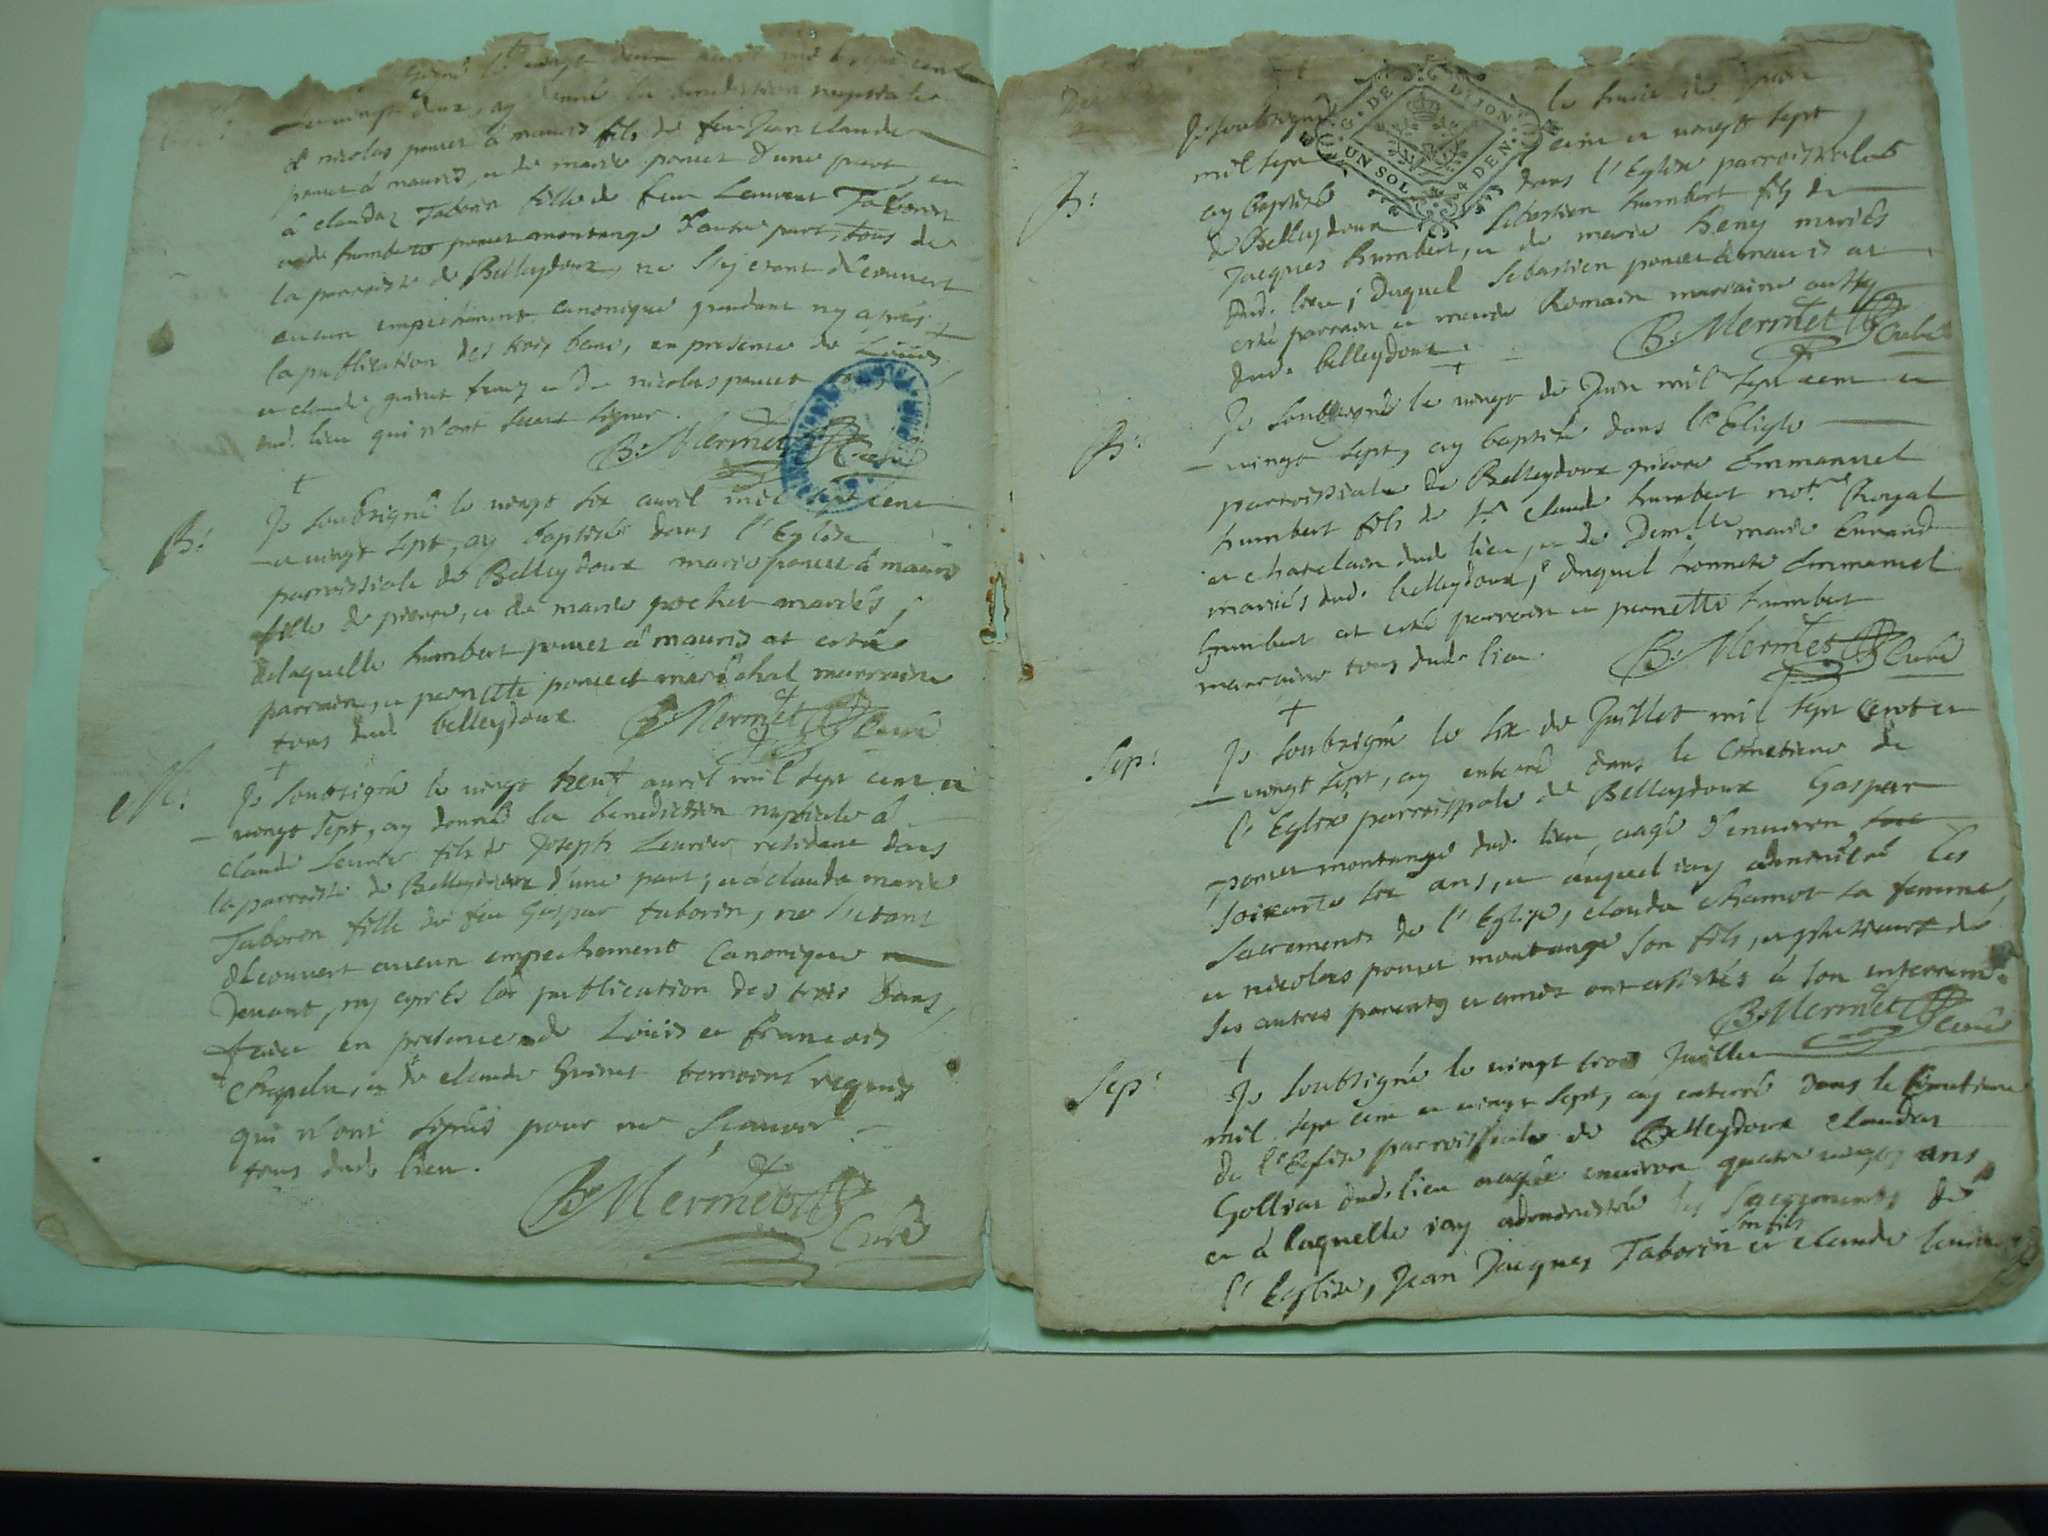 à nicolas poncet à mauris fils de feu Jean claude
poncet à mauris, et de marie poncet d'une part, et
à claudaz Taborin fille de feu Laurent Taborin
poncet montange d'autre part, tous de
la parroisse de Belleydoux, ne s'y etant decouvert
aucun empechement canonique pendant ny aprés
la publication des trois bans, en presence de Loüis
et claude et de nicolas poncet
dud. lieu qui n'ont sceut signer.
B. Mermet Curé
B: Je soubsigné le vingt six avril mil sept cent
et vingt sept, ay baptisé dans l'Eglise
parroissiale de Belleydoux marie poncet à mauris
fille de pierre, et de marie pochet mariés;
delaquelle humbert poncet à mauris at esté
parrain, et pernette poncet maréchal marraine
tous dud. belleydoux B. Mermet Curé
M: Je soubsigné le vingt neuf avril mil sept cent et
vingt sept, ay donné la benediction nuptiale à
claude fils de Joseph residant dans
la parroisse de Belleydoux d'une part; et à claude marie
Taborin fille de feu Gaspar taborin, ne s'y etant
decouvert aucun empechement Canonique
devant, ny aprés la publication des trois bans,
faite en presence de Loüis et francois
Chapelu, et de claude temoins requis
qui n'ont signés pour ne sçavoir.
tous dud. lieu.
B. Mermet Curé
UN SOL G. DE DIJON 4 DEN.
Je soubsigné le huit de Juin
mil sept cent et vingt sept,
B: ay baptisé dans l'Eglise parroissiale
de Belleydoux Sebastien humbert fils de
Jacques humbert, et de marie heny mariés
dud. lieu; duquel Sebastien poncet à mauris at
esté parrain et Romain marraine
dud. belleydoux. B. Mermet Curé
B: Je soubsigné le vingt de Juin mil sept cent et
vingt sept, ay baptisé dans l'Eglise
parroissiale de Belleydoux pierre Emmanuel
humbert fils de Sr. claude humbert notre. Royal
et chatelain dud. lieu, et de Demlle. marie
mariés dud. belleydoux; duquel honnete Emmanuel
humbert at esté parrain et pernette humbert
marraine tous dud. lieu. B. Mermet Curé
Sep: Je soubsigné le six de Juillet mil sept cent et
vingt sept, ay enterré dans le Cimetiere de
l'Eglise parroissiale de Belleydoux Gaspar
poncet montange dud. lieu, aagé d'environ
soixante six ans, et auquel iay administré les
sacrements de l'Eglise, clauda chamot sa femme,
et nicolas poncet montange son fils, et plusieurs de
ses autres parents et amis ont assistés à son enterrem.
B. Mermet Curé
Sep: Je soubsigné le vingt trois Juillet
mil sept cent et vingt sept, ay enterré dans le Cimetiere
de l'Eglise parroissiale de Belleydoux claudaz
Golliar dud. lieu aagée environ quatre vingts ans,
et à laquelle iay administré les sacrements de
l'Eglise, Jean Jacques Taborin son fils et claude